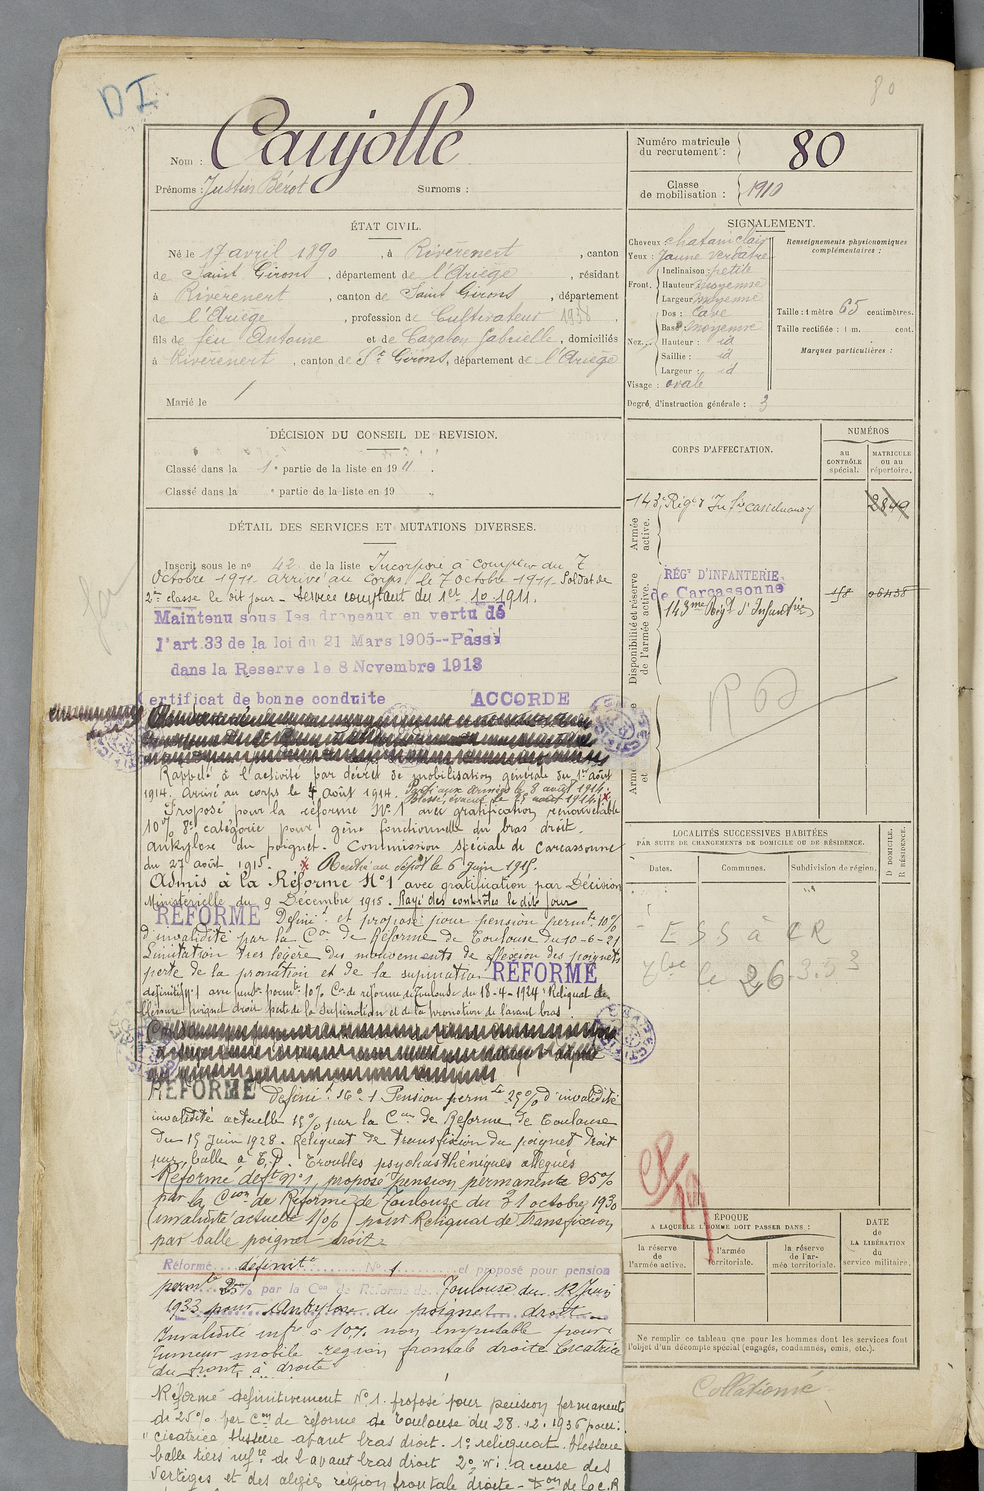 DI
80
Nom : Caujolle
Prénoms : Justin Bérot Surnoms :
Numéro matricule du recrutement : 80
Classe de mobilisation : 1910
ÉTAT CIVIL.
Né le 17 avril 1890 , à Rivèrenert , canton
de Saint Girons , département de l'Ariège , résidant
à Rivèrenert , canton de Saint Girons , département
de l'Ariège , profession de Cultivateur 1938 ,
fils de feu Antoine et de Cazabon Gabrielle , domiciliés
à Rivèrenert , canton de St Girons, département de l'Ariège
Marié le
SIGNALEMENT.
Cheveux chatain clair
Yeux : Jaune verdâtre
Front. Inclinaison : petite
Hauteur moyenne
Largeur moyenne
Nez. Dos : Cave
Base moyenne
Hauteur : id
Saillie : id
Largeur : id
Visage : ovale
Degré, d'instruction générale : 3
Renseignements physionomiques complémentaires :
Taille : 1 mètre 65 centimètres.
Taille rectifiée : 1 m. cent.
Marques particulières :
DÉCISION DU CONSEIL DE REVISION.
Classé dans la 1e partie de la liste en 1911 .
Classé dans la e partie de la liste en 19 .
DÉTAIL DES SERVICES ET MUTATIONS DIVERSES.
Inscrit sous le no 42 de la liste Incorporé à compter du 7
Octobre 1911. arrivé au corps le 7 octobre 1911. Soldat de
2e classe le dit jour - Service comptant du 1er 10 1911.
Maintenu sous les drapeaux en vertu de
l'art.33 de la loi du 21 Mars 1905--Passé
dans la Reserve le 8 Novembre 1913
ertificat de bonne conduite ACCORDE
Rappelé à l'activité par décret de mobilisation générale du 1er août
1914. Arrivé au corps le 4 août 1914. Parti aux armées le 8 août 1914.
Blessé, évacué le 25 août 1914.
Proposé pour la réforme No 1 avec gratification renouvelable
10% 8e catégorie pour gêne fonctionnelle du bras droit.
ankylose du poignet. Commission spéciale de Carcassonne
du 27 août 1915. Rentré au dépôt le 6 Juin 1915.
Admis à la Réforme No 1 avec gratification par Décision
Ministérielle du 9 Décembre 1915. Rayé des contrôles le dit jour
REFORMÉ Définit et proposé pour pension permte 10%
d'invalidité par la Con de Réforme de Toulouse du 10-6-21
Limitation très légère des mouvements de flexion des poignets
perte de la pronation et de la supination REFORMÉ
définitif no 1 avec permte 10% Con de réforme de Toulouse du 18-4-1924 Reliquat de
blessure poignet droit perte de la Supination et de la pronation de l'avant bras
REFORMÉ Définit 16o 1 Pension permte 25% d'invalidité
invalidité actuelle 15% par la Con de Réforme de Toulouse
du 15 Juin 1928. Reliquat de transfixion du poignet droit
par balle à T.P. Troubles psychasthéniques allégués
Réformé deft No 1, proposé pension permanente 25%
par la Cion de Réforme de Toulouse du 31 octobre 1930
(invalidité actuelle 10%) pour Reliquat de transfixion
par balle poignet droit.
Réformé définitt No 1 et proposé pour pension
permte 25% par la Con de Réforme de Toulouse du 12 Juin
1933 pour Ankylose du poignet droit
Invalidité infre à 10% non imputable pour
tumeur mobile region frontale droite Cicatrice
du front à droite
Réformé définitivement No 1. proposé pour pension permanente
de 25% par Con de réforme de Toulouse du 28.12.1936 pour :
cicatrice blessure avant bras droit. 1o reliquat blessure
balle tiers infre de l'avant bras droit 2o ni accuse des
vertiges et des algies région frontale droite - Don de la C.R
CORPS D'AFFECTATION.
NUMÉROS
au CONTRÔLE spécial.
MATRICULE ou au répertoire.
Armée active.
143e Régt d'Infie Castelnaudary 2840
Disponibilité et réserve de l'armée active.
RÉGt D'INFANTERIE
de Carcassonne
143me Régt d'Infanterie
LOCALITÉS SUCCESSIVES HABITÉES
PAR SUITE DE CHANGEMENTS DE DOMICILE OU DE RÉSIDENCE.
Dates. Communes. Subdivision de région. D DOMICILE. R RÉSIDENCE.
ESS à CR
le 26.3.53
ÉPOQUE
A LAQUELLE L'HOMME DOIT PASSER DANS :
la réserve de l'armée active.
l'armée territoriale.
la réserve de l'armée territoriale.
DATE DE LA LIBÉRATION du service militaire.
Ne remplir ce tableau que pour les hommes dont les services font
l'objet d'un décompte spécial (engagés, condamnés, omis, etc.).
Collationné